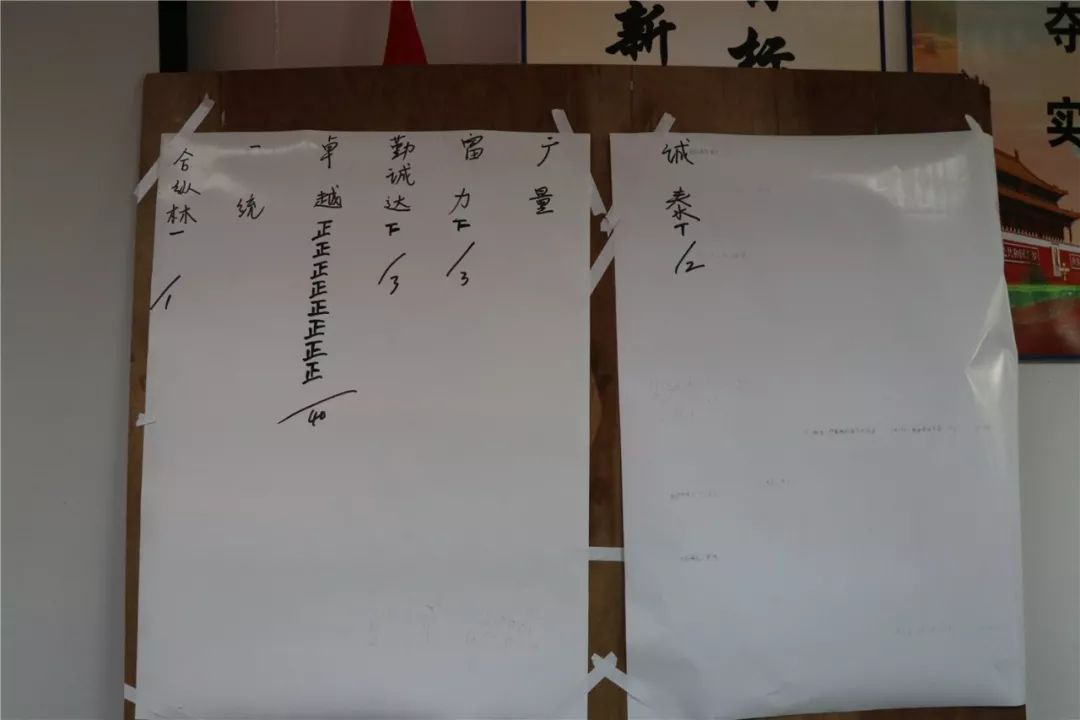 新
标
夺
实
合纵林
一
1
一统
卓越
正正正正正正正正
40
勤诚达
下
3
富力
下
3
广量
诚泰
T
2